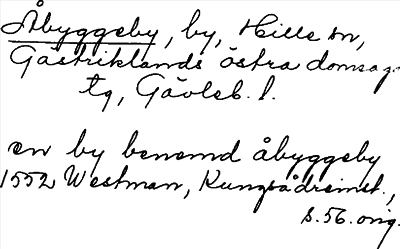 Åbyggeby, by, Hille sn,
Gästriklands östra domsaga
tg, Gävleb. l.
en by benemd åbyggeby
1552 Westman, Kungsådreinst.,
s. 56. orig.